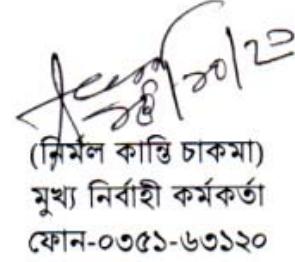 (নির্মল কান্তি চাকমা)
মুখ্য নির্বাহী কর্মকর্তা
ফোন-০৩৫১-৬৩১২০